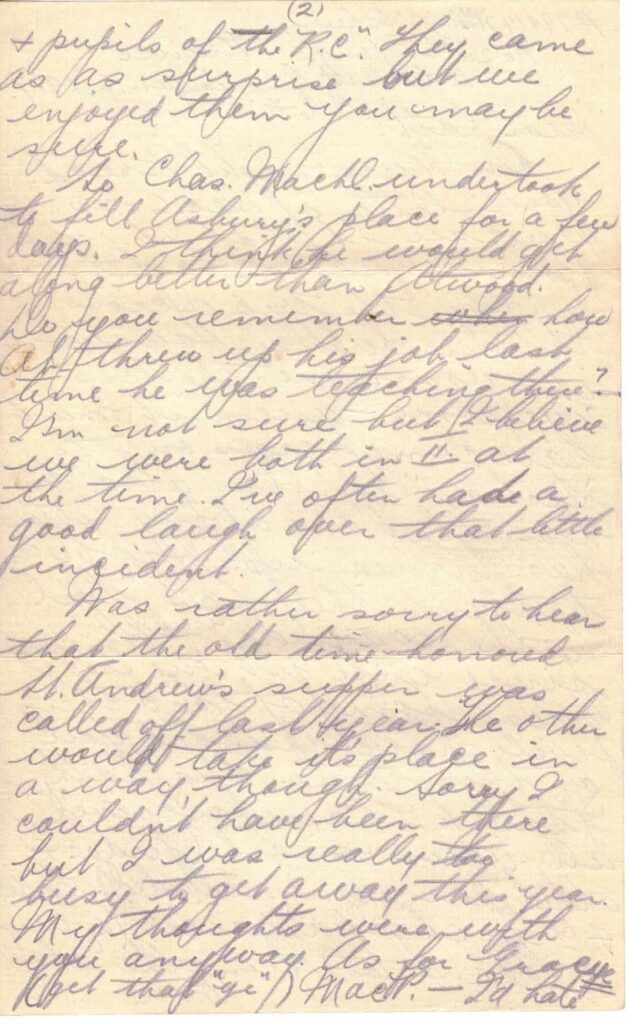 (2)
+ pupils of the "R.C". They came
as as surprise but we
enjoyed them you may be
sure.
So Chas. MacD. undertook
to fill Asbury's place for a few
days. I think he would get
along better than Atwood.
Do you remember when how
At. threw up his job last
time he was teaching there?
I'm not sure but I believe
we were both in II. at
the time. I've often had a
good laugh over that little
incident.
Was rather sorry to hear
that the old time-honored
St. Andrew's supper was
called off last year. The other
would take it's place in
a way though. Sorry I
couldn't have been there
but I was really too
busy to get away this year.
My thoughts were with
you anyway. As for Gracye
(get that "ye") MacP. — I'd hate